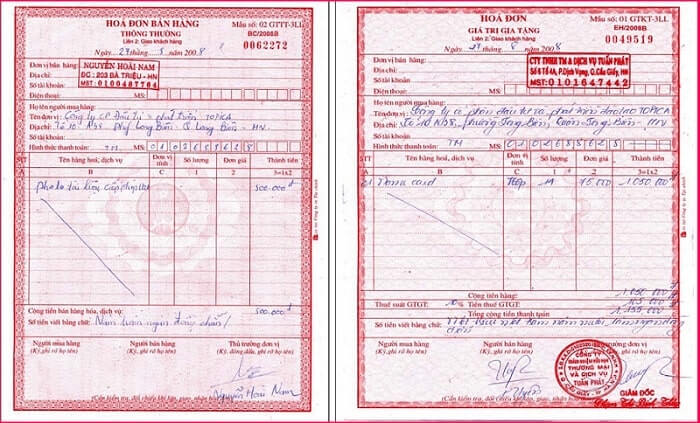 HOÁ ĐƠN BÁN HÀNG
THÔNG THƯỜNG
Liên 2: Giao khách hàng
Mẫu số: 02 GTTT-3LL
BC/2008B
0062272
Ngày 29 tháng 5 năm 2008
Đơn vị bán hàng:
NGUYỄN HOÀI NAM
Địa chỉ:
ĐC : 203 BÀ TRIỆU - HN
Số tài khoản
MST: 0100487764
Điện thoại: MS:
Họ tên người mua hàng:
Tên đơn vị: Công ty CP Đầu tư & phát triển TOPICA
Địa chỉ: Tổ 10 Phường Long Biên Q Long Biên - HN
Số tài khoản
Hình thức thanh toán: TM MS:
STT Tên hàng hoá, dịch vụ Đơn vị Số lượng Đơn giá Thành tiền
A B C 1 2 3=1x2
500.000đ
Cộng tiền bán hàng hóa, dịch vụ: 500.000đ
Số tiền viết bằng chữ: Năm trăm ngàn đồng chẵn/
Người mua hàng Người bán hàng Thủ trưởng đơn vị
(Ký, ghi rõ họ tên) (Ký, ghi rõ họ tên) (Ký, đóng dấu, ghi rõ họ tên)
Nguyễn Hoài Nam
HOÁ ĐƠN
GIÁ TRỊ GIA TĂNG
Liên 2: Giao khách hàng
Mẫu số: 01 GTKT-3LL
EH/2008B
0049519
Ngày 29 tháng 8 năm 2008
Đơn vị bán hàng:
CTY TNHH TM & DỊCH VỤ TUẤN PHÁT
Địa chỉ:
Số 6 Tổ 4A, P.Dịch Vọng, Q.Cầu Giấy, HN
Số tài khoản
MST: 0101647442
Điện thoại: MS:
Họ tên người mua hàng:
Tên đơn vị: Công ty cổ phần đầu tư và phát triển đào tạo TOPICA
Địa chỉ: Tổ 10 Phường Long Biên, Quận Long Biên - HN
Số tài khoản
Hình thức thanh toán: TM MS:
STT Tên hàng hoá, dịch vụ Đơn vị Số lượng Đơn giá Thành tiền
A B C 1 2 3=1x2
card Hộp 14 75.000 1.050.000đ
Cộng tiền hàng: 1.050.000đ
Thuế suất GTGT: 10% Tiền thuế GTGT: 105.000đ
Tổng cộng tiền thanh toán 1.155.000đ
Số tiền viết bằng chữ: Một triệu một trăm năm mươi lăm ngàn đồng
Người mua hàng Người bán hàng
(Ký, ghi rõ họ tên) (Ký, ghi rõ họ tên)
CÔNG TY
TRÁCH NHIỆM HỮU HẠN
THƯƠNG MẠI
VÀ DỊCH VỤ
TUẤN PHÁT
GIÁM ĐỐC